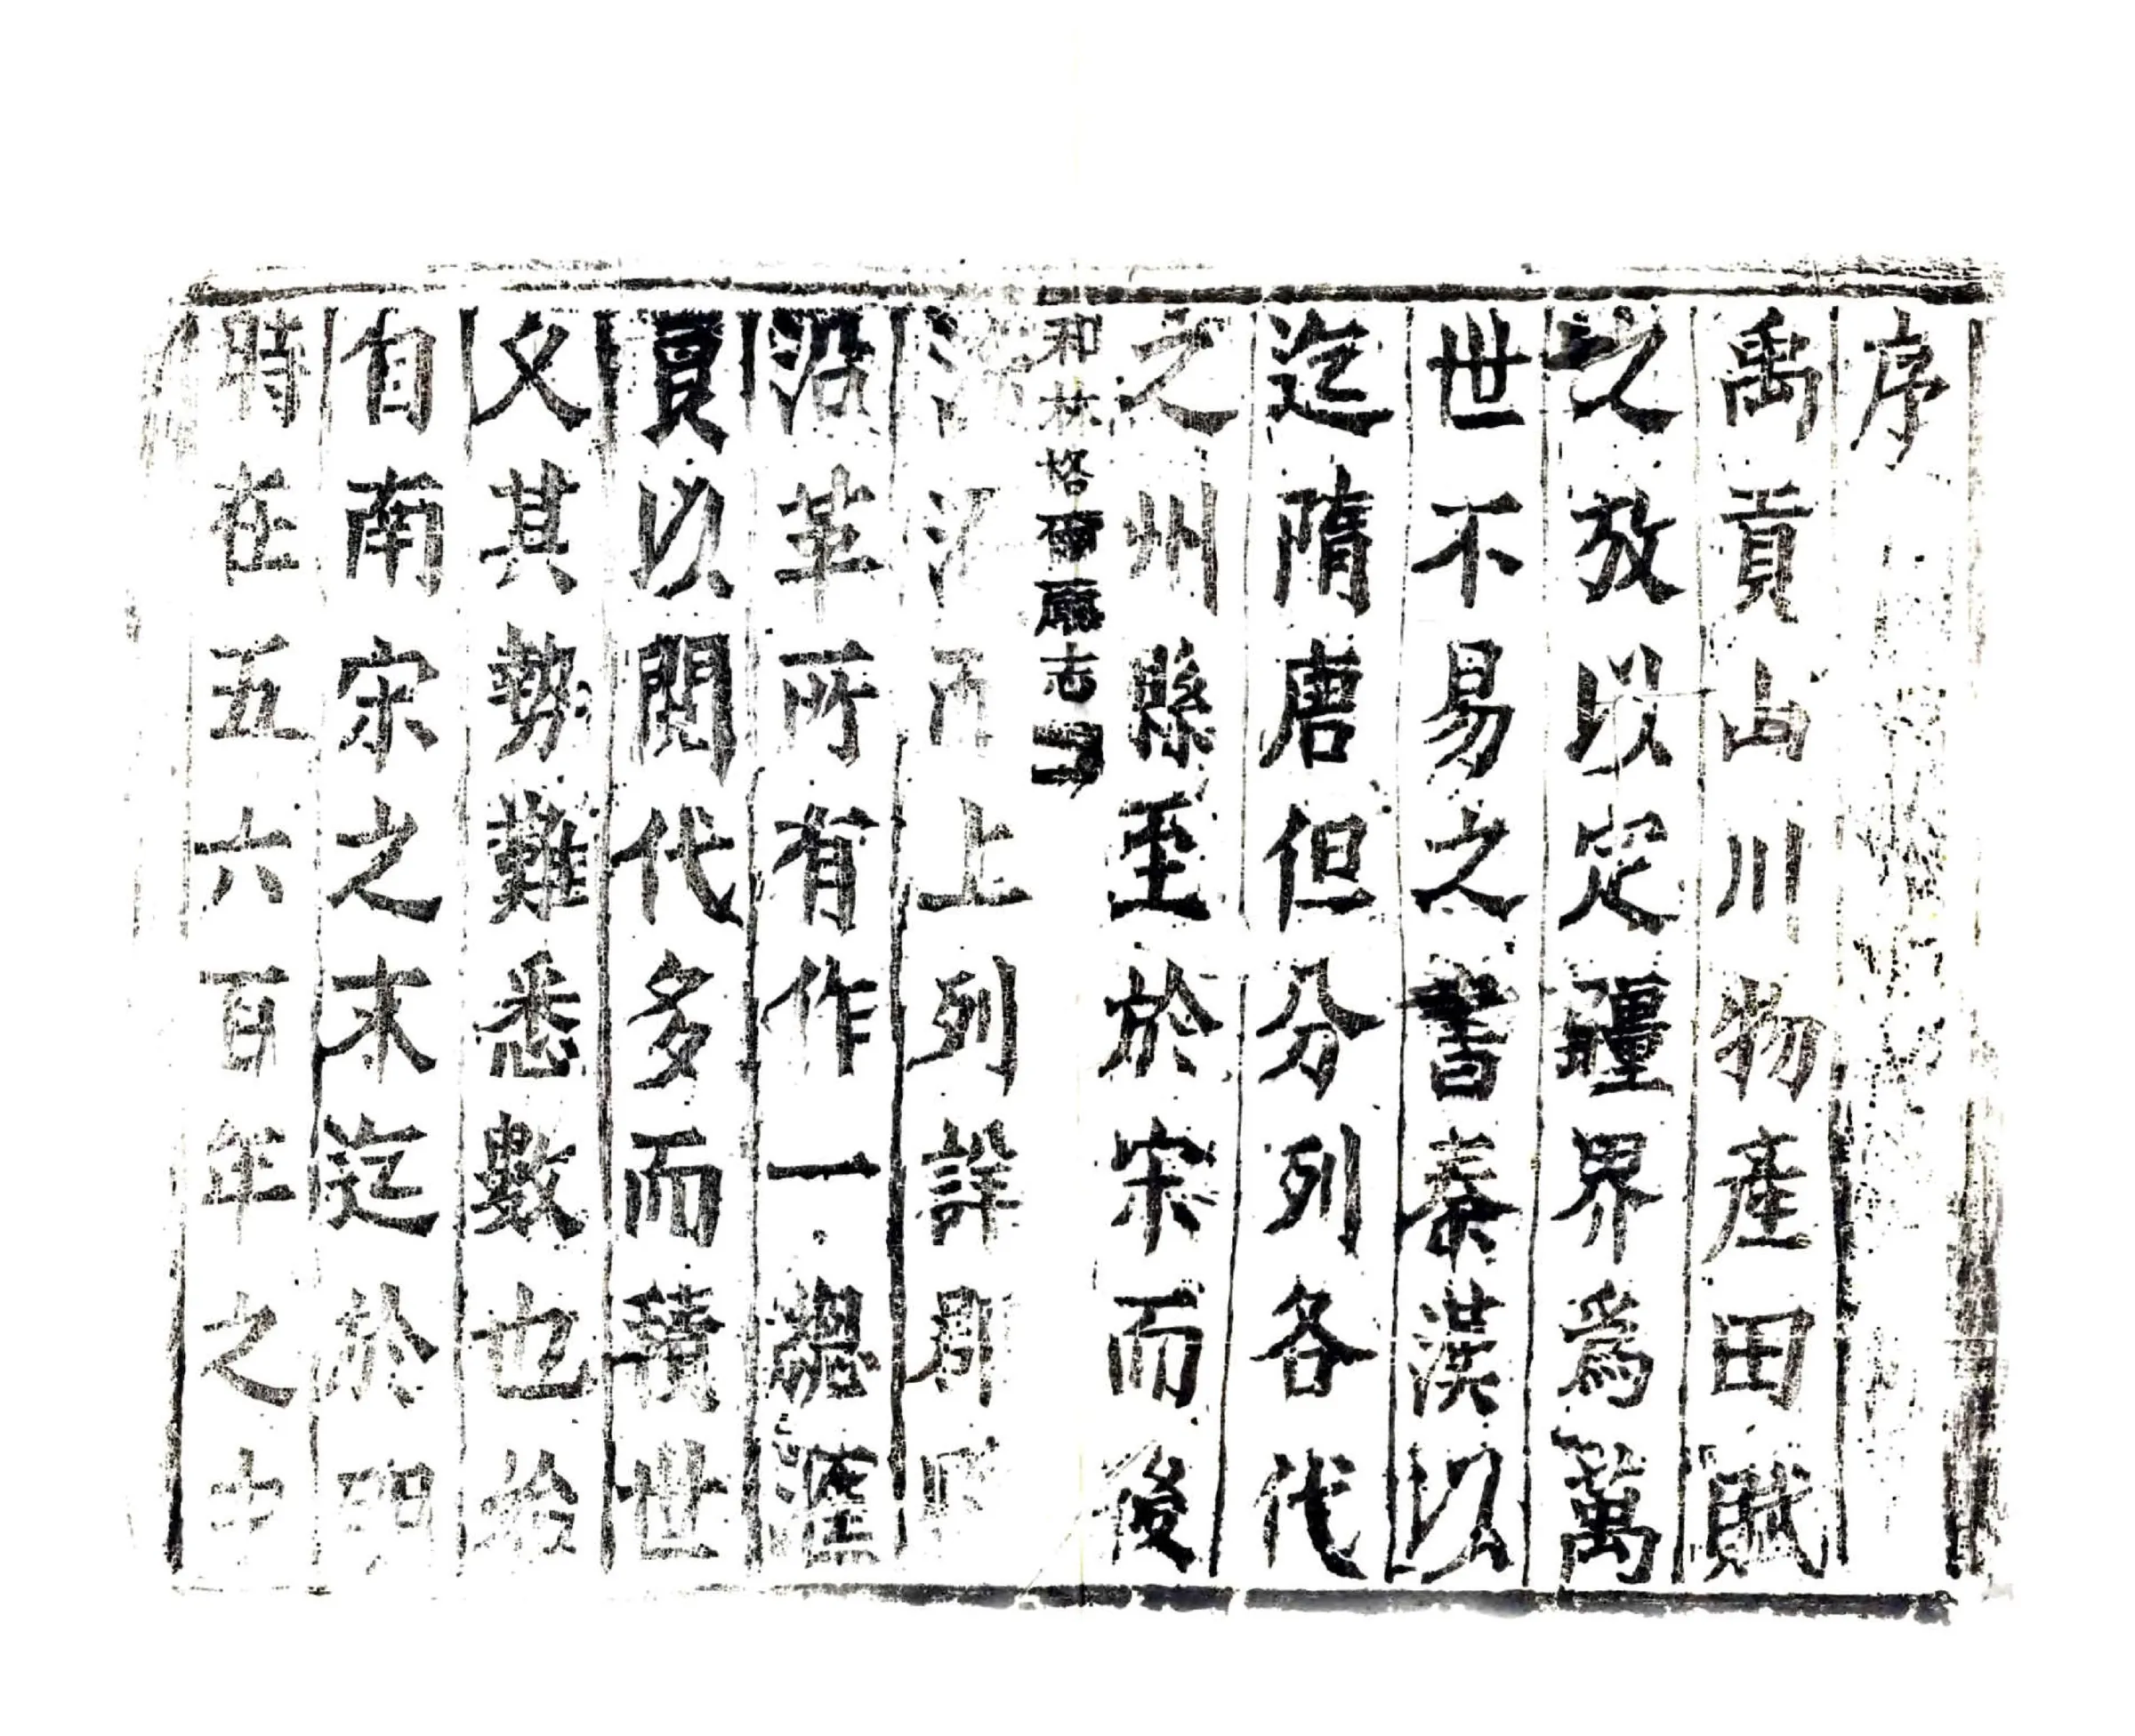 序
禹貢山川物產田賦
之放以定疆界爲萬
世不易之書秦漢以
迄隋唐但分列各代
之州縣至於宋而後
和林格爾廳志
上列詳郡
沿革所有作一
貢以閱代多而積世
父其勢難悉數也
自南宋之末迄於
時在五六百年之